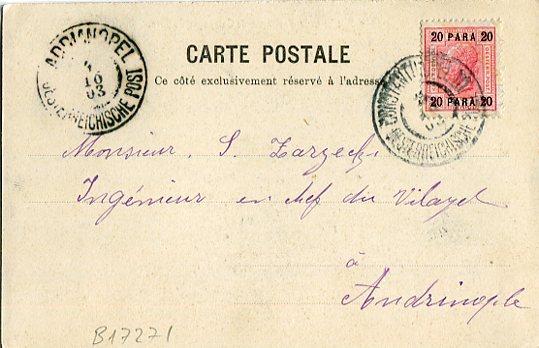 ADRIANOPEL
10
03
OESTERREICHISCHE POST
CARTE POSTALE
Ce côté exclusivement réservé à l'adresse
20 PARA 20
20 PARA 20
OESTERREICHISCHE
Monsieur S. Zarzecki
Ingénieur en chef du Vilayet
à
Andrinople
B17271